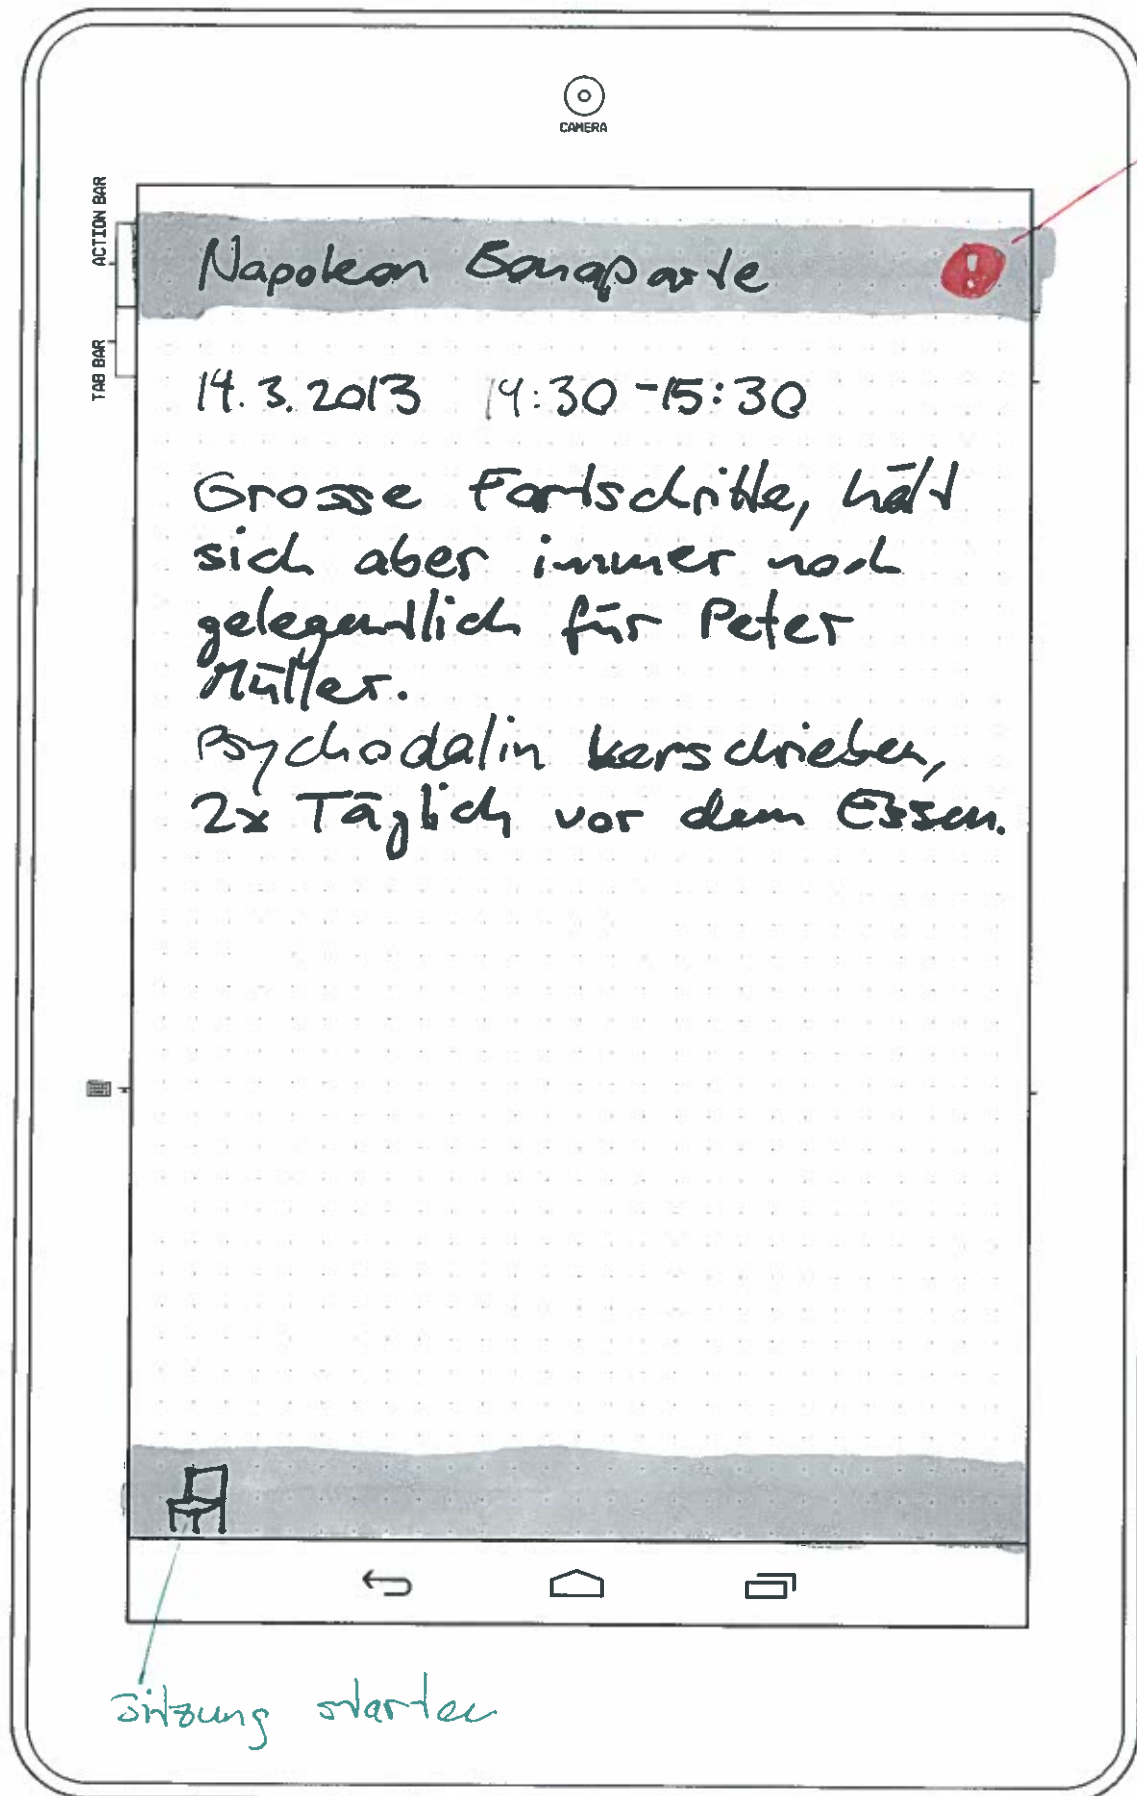 CAMERA
ACTION BAR
Napoleon Bonaparte
TAB BAR
14.3.2013 14:30-15:30
Grosse Fortschritte, hält
sich aber immer noch
gelegentlich für Peter
Müller.
Psychodalin verschrieben,
2x Täglich vor dem Essen.
Sitzung starten